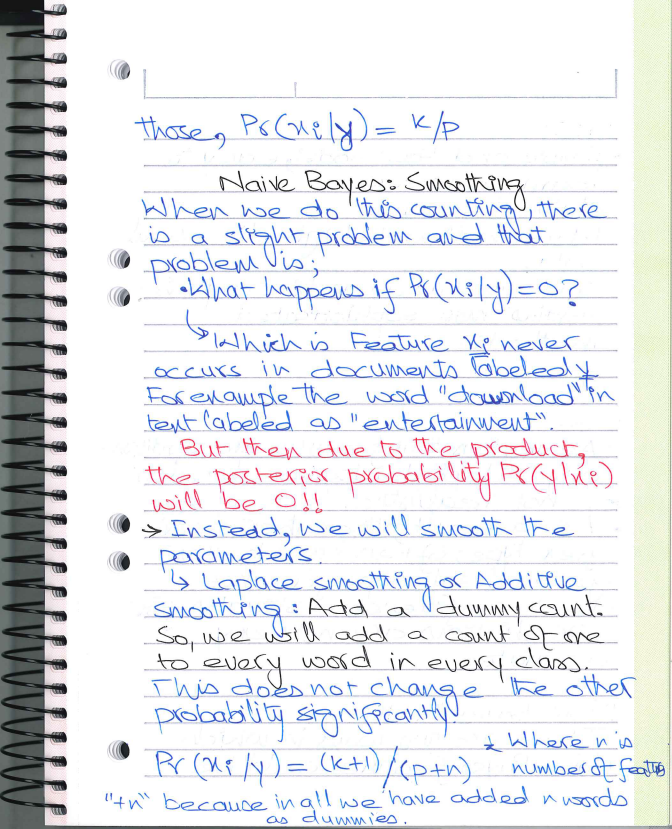 those, Pr(xi/y) = k/p
Naive Bayes: Smoothing
When we do this counting, there
is a slight problem and that
problem is;
•What happens if Pr(xi/y)=0?
↳ Which is Feature xi never
occurs in documents labeled y
For example the word "download" in
text labeled as "entertainment".
But then due to the product,
the posterior probability Pr(y/xi)
will be 0!!
→ Instead, we will smooth the
parameters.
↳ Laplace smoothing or Additive
smoothing: Add a dummy count.
So, we will add a count of one
to every word in every class.
This does not change the other
probability significantly.
* Where n is
Pr(xi/y) = (k+1)/(p+n) number of features
"+n" because in all we have added n words
as dummies.